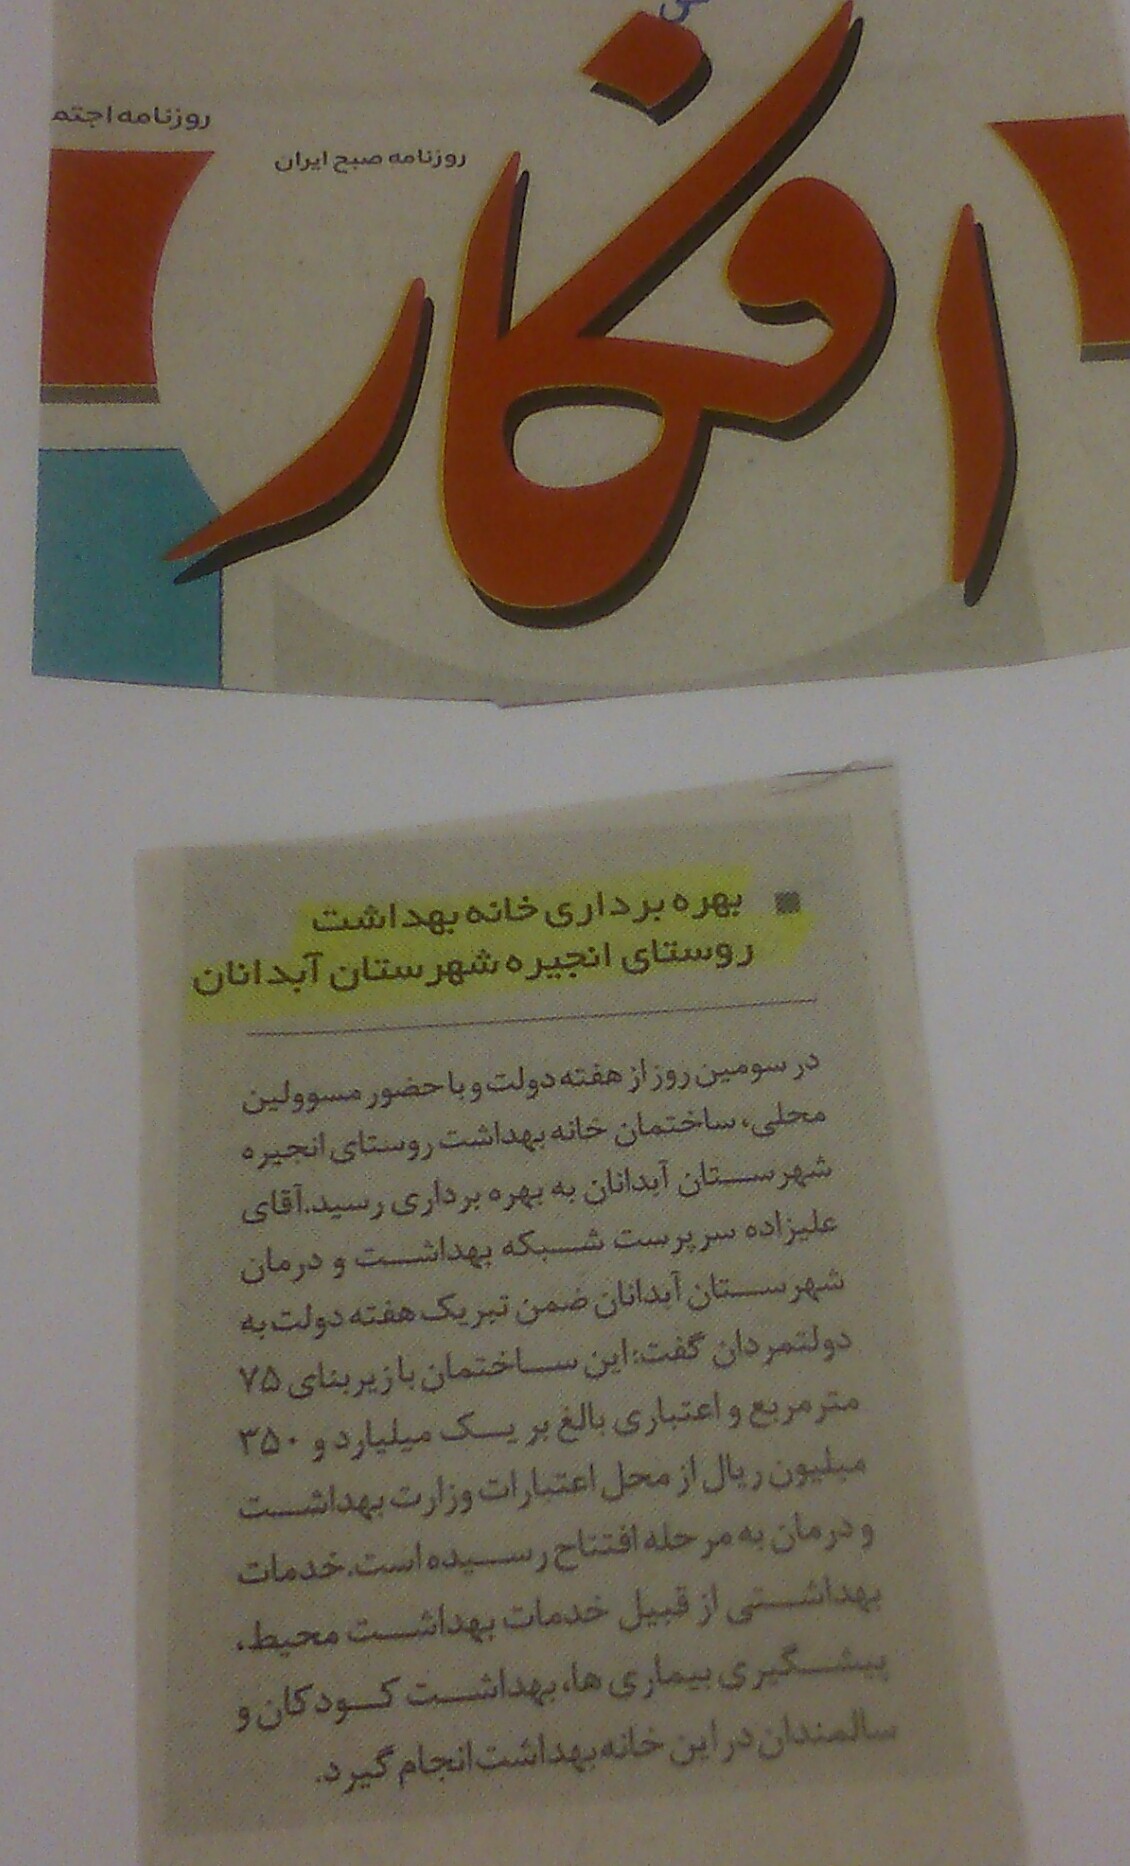 روزنامه اجتم
روزنامه صبح ایران
افکار
بهره برداری خانه بهداشت
روستای انجیره شهرستان آبدانان
در سومین روز از هفته دولت و با حضور مسوولین
محلی، ساختمان خانه بهداشت روستای انجیره
شهرستان آبدانان به بهره برداری رسید.آقای
علیزاده سرپرست شبکه بهداشت و درمان
شهرستان آبدانان ضمن تبریک هفته دولت به
دولتمردان گفت:این ساختمان با زیربنای ۷۵
مترمربع و اعتباری بالغ بر یک میلیارد و ۳۵۰
میلیون ریال از محل اعتبارات وزارت بهداشت
و درمان به مرحله افتتاح رسیده است.خدمات
بهداشتی از قبیل خدمات بهداشت محیط،
پیشگیری بیماری ها،بهداشت کودکان و
سالمندان در این خانه بهداشت انجام گیرد.